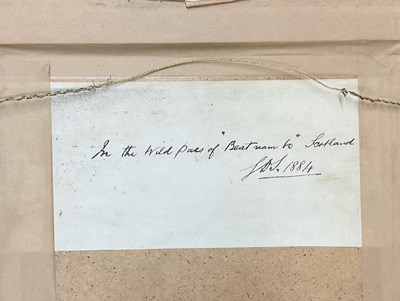 In the Wild Pass of "Beat nam bo" Scotland
1884